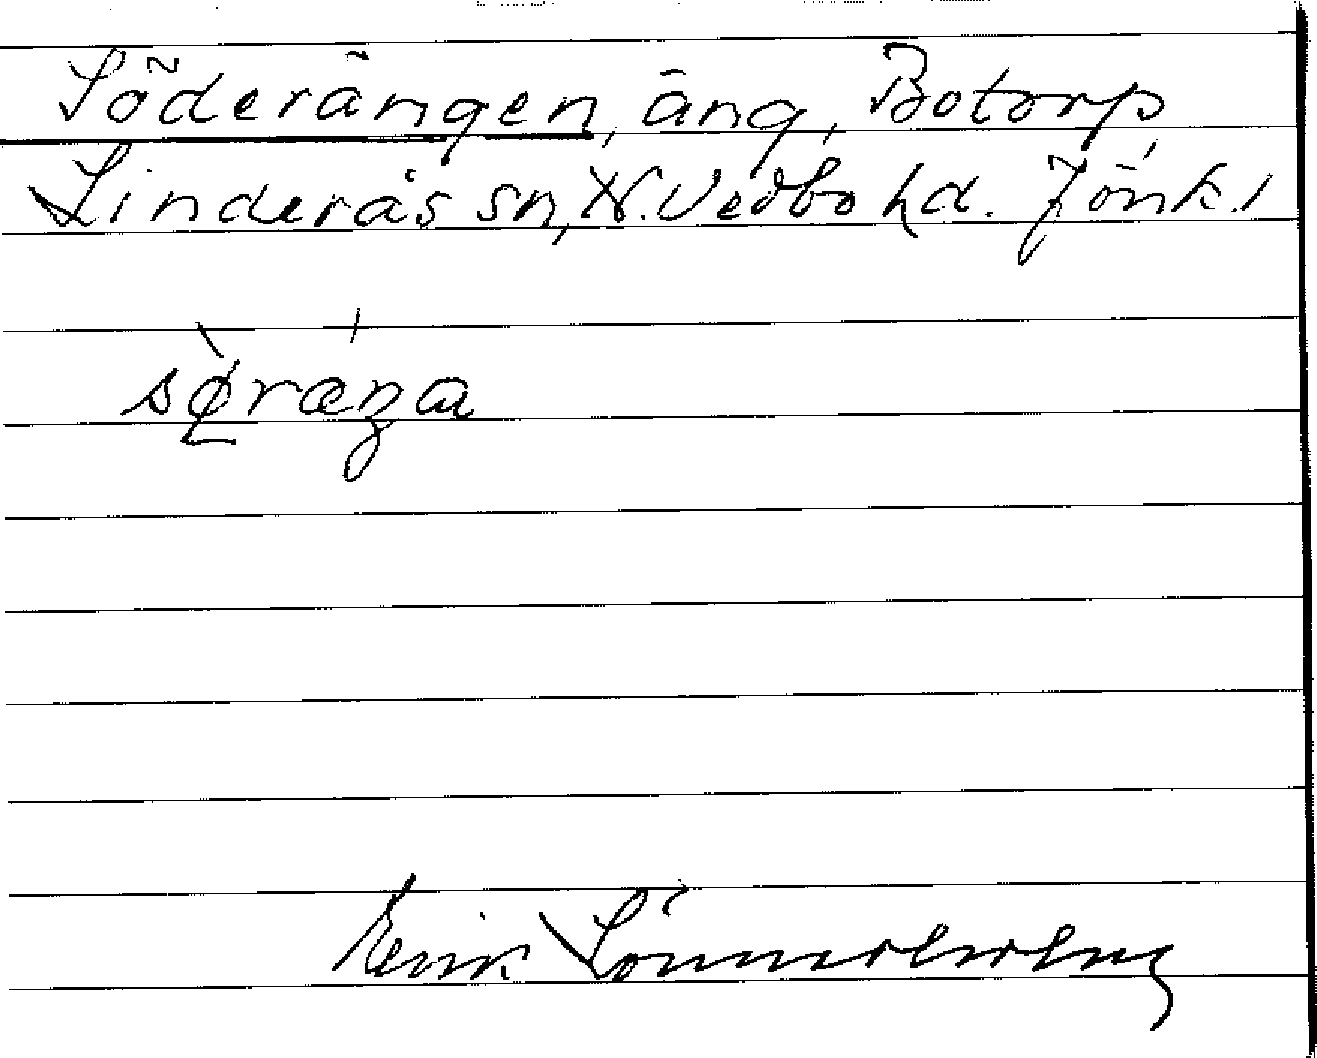 Söderängen, äng, Botorp,
Linderås sn, N. Vedbo hd. Jönk. l
sø̨ræŋa
Erik